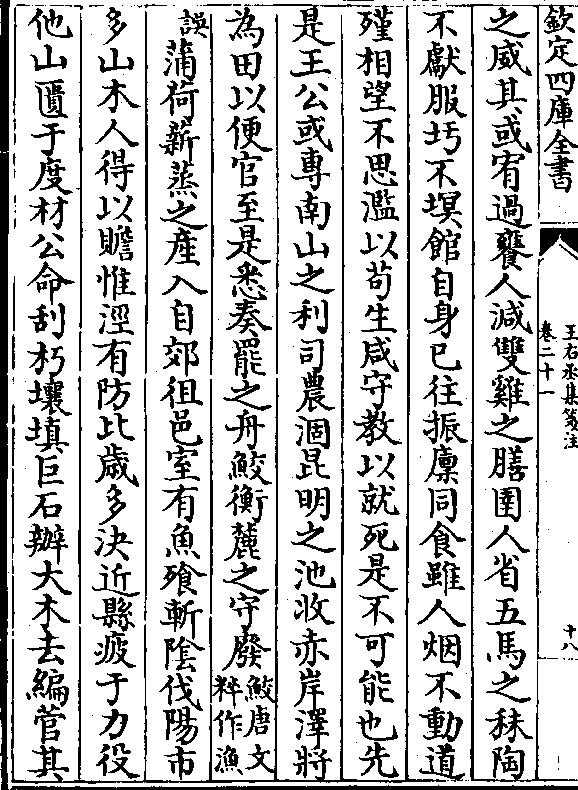 欽定四庫全書
王右丞集箋注
卷二十一
十八
之威其或宥過饔人減雙雞之膳圉人省五馬之秣陶
不獻服圬不塓館自身已往振廩同食雖人烟不動道
殣相望不思濫以苟生咸守教以就死是不可能也先
是王公或專南山之利司農涸昆明之池收赤岸澤將
為田以便官至是悉奏罷之舟鮫衡麓之守廢鮫唐文
粹作漁
誤蒲荷薪蒸之産入自郊徂邑室有魚飱斬陰伐陽市
多山木人得以贍惟涇有防比歲多決近縣疲于力役
他山匱于度材公命刮朽壤填巨石辦大木去編菅其